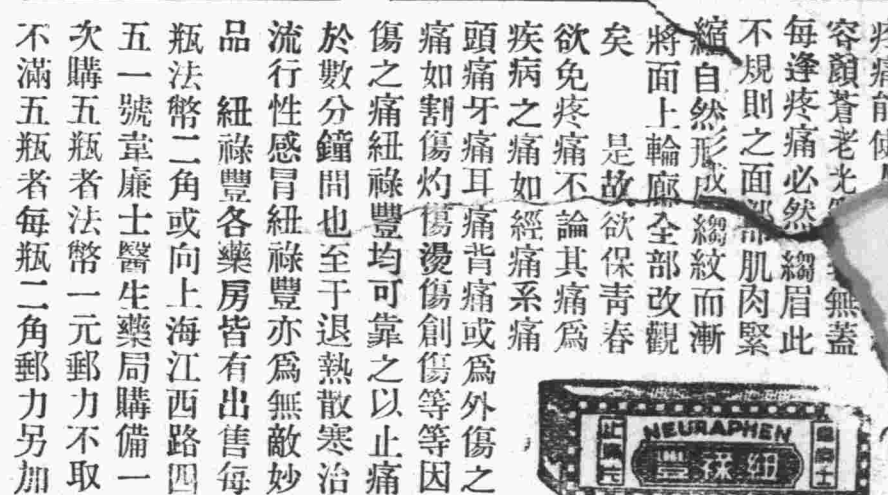 疼痛能使
容顏蒼老光無蓋
每逢疼痛必然縐眉此
不規則之面部肌肉緊
縮自然形成縐紋而漸
將面上輪廓全部改觀
矣　是故欲保青春
欲免疼痛不論其痛為
疾病之痛如經痛系痛
頭痛牙痛耳痛背痛或為外傷之
痛如割傷灼傷燙傷創傷等等因
傷之痛紐祿豐均可靠之以止痛
於數分鐘間也至于退熱散寒治
流行性感冒紐祿豐亦為無敵妙
品　紐祿豐各藥房皆有出售每
瓶法幣二角或向上海江西路四
五一號韋廉士醫生藥局購備一
次購五瓶者法幣一元郵力不取
不滿五瓶者每瓶二角郵力另加
NEURAPHEN
紐祿豐
韋廉士
止痛片